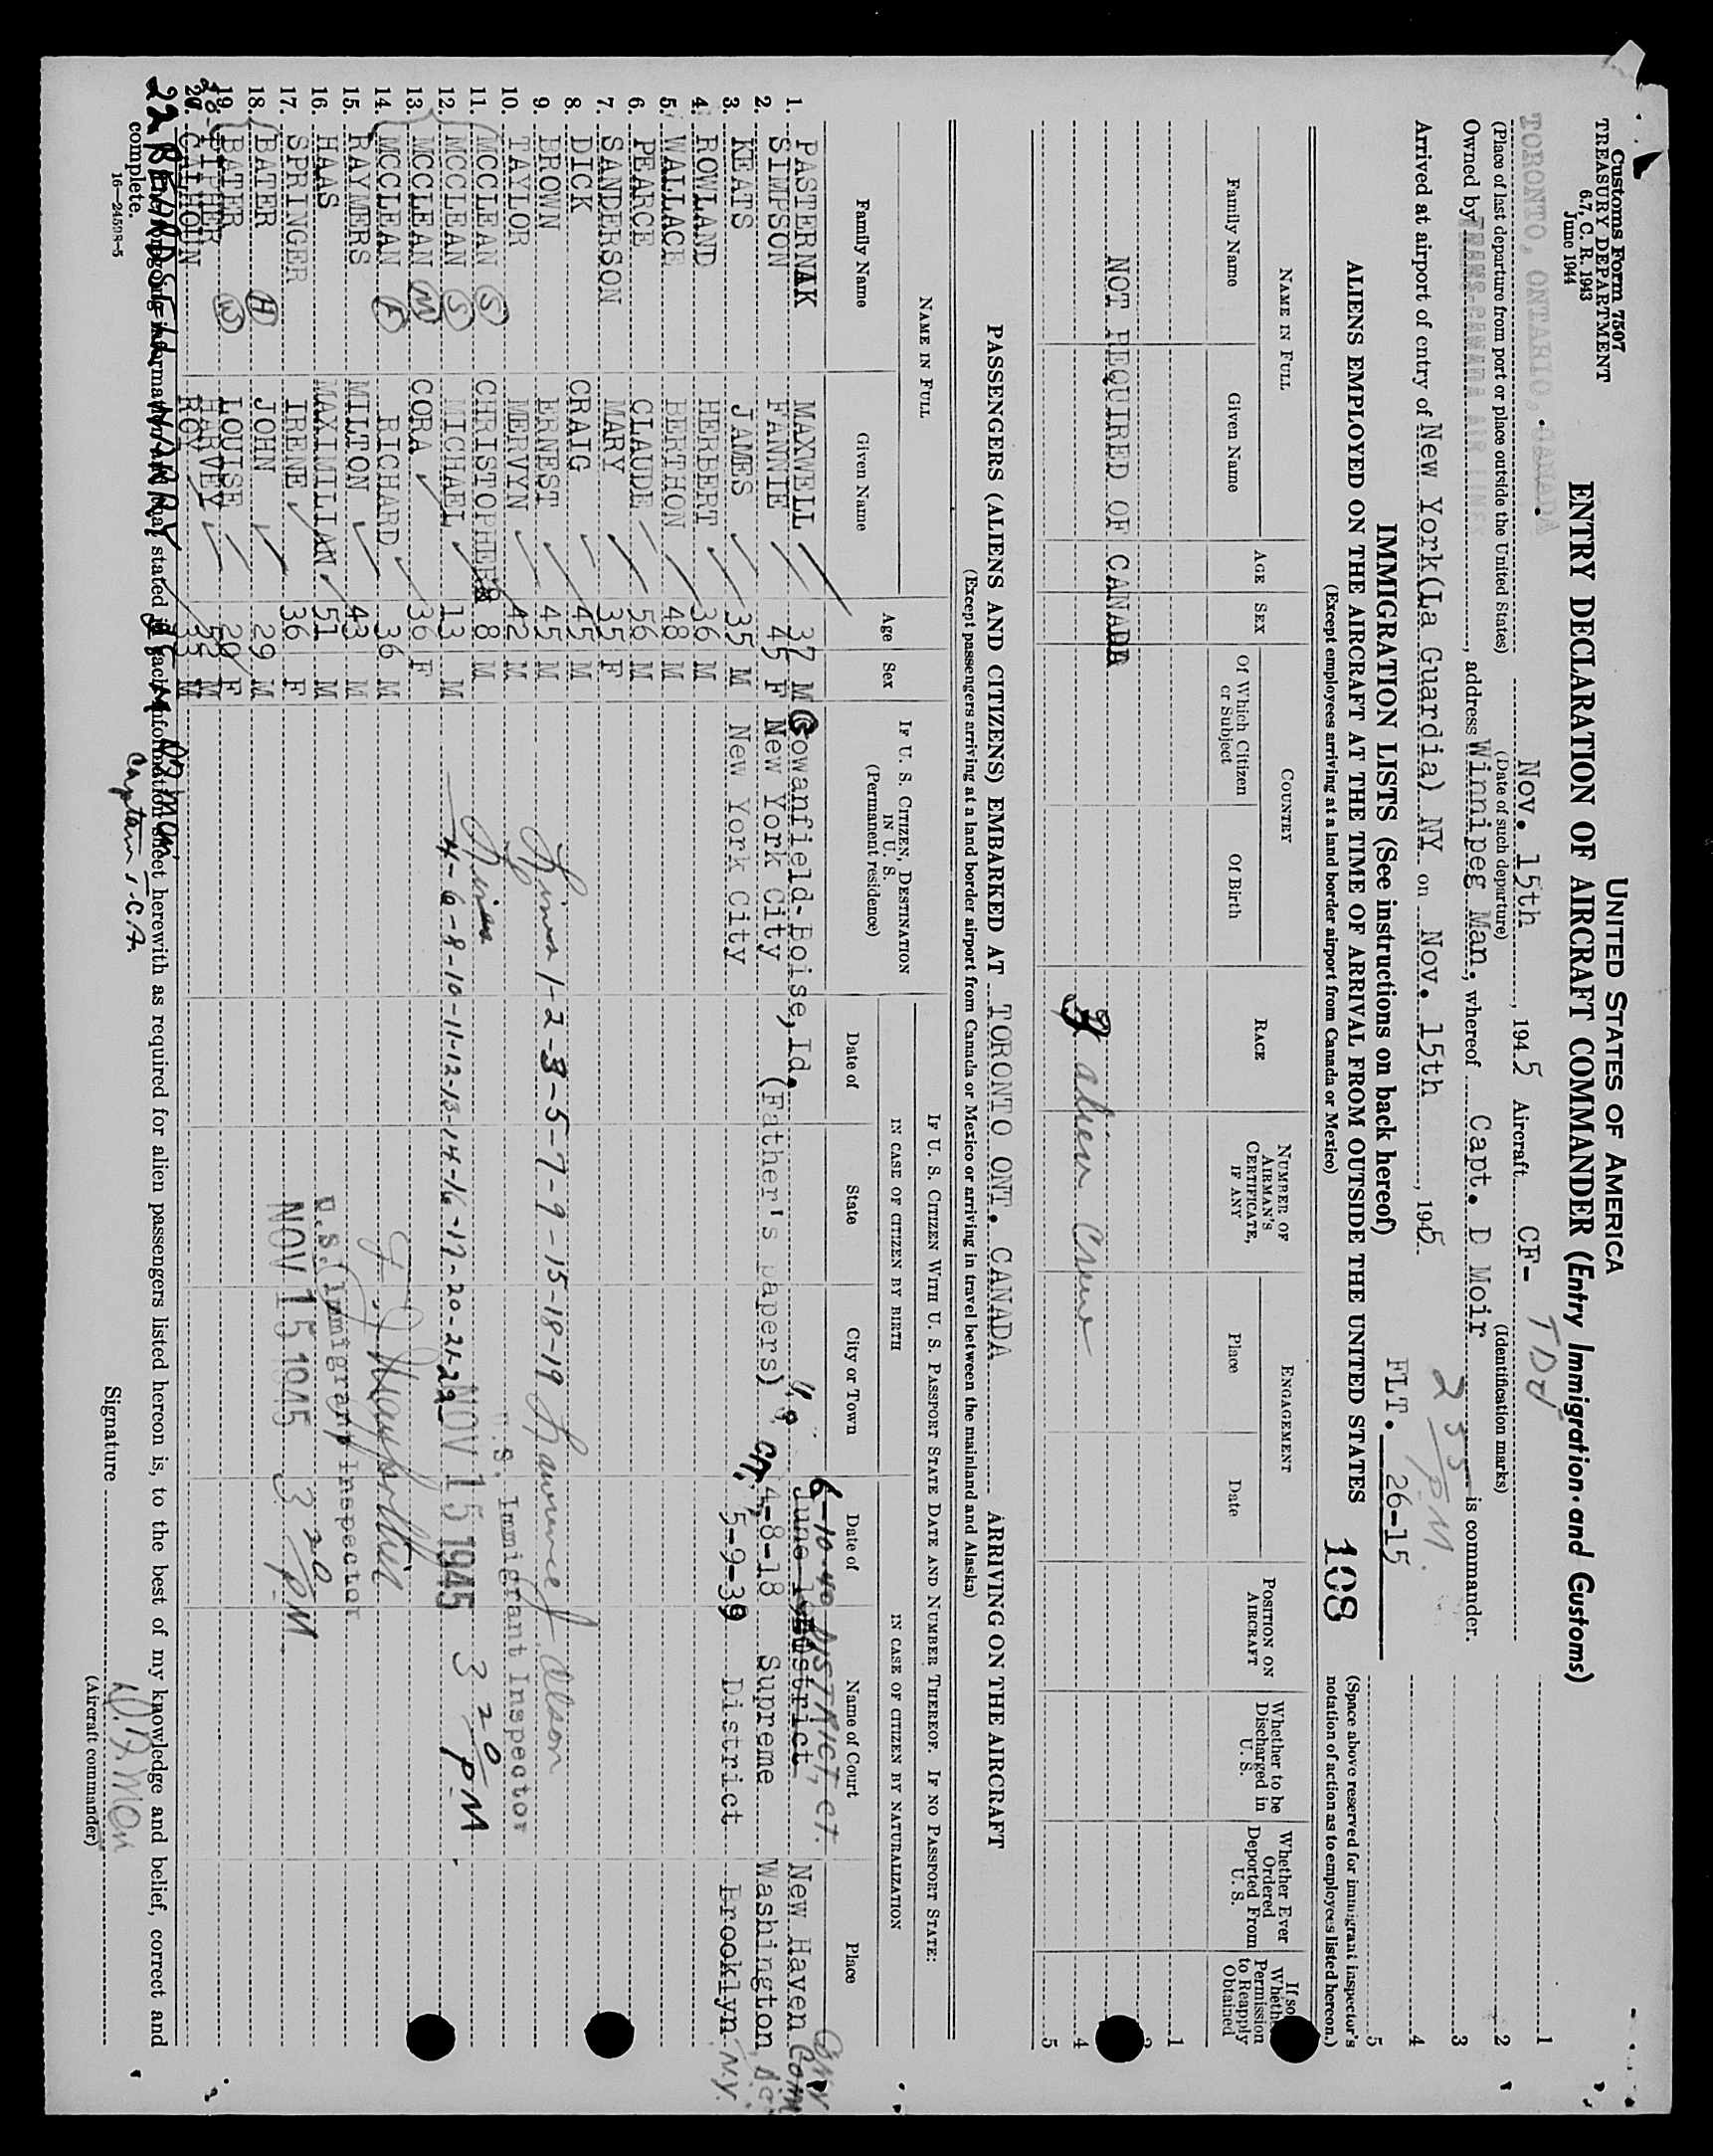 Customs Form 7507
TREASURY DEPARTMENT
6.7, C. R. 1943
June 1944
UNITED STATES OF AMERICA
ENTRY DECLARATION OF AIRCRAFT COMMANDER (Entry Immigration and Customs)
TORONTO, ONTARIO, CANADA Nov. 15th, 1945 Aircraft CF- TDJ
(Place of last departure from port or place outside the United States) (Date of such departure) (Identification marks)
Owned by TRANS-CANADA AIR LINES, address Winnipeg Man., whereof Capt. D Moir is commander.
Arrived at airport of entry of New York(La Guardia) NY on Nov. 15th, 1945
2 55 PM.
FLT. 26-15
IMMIGRATION LISTS (See instructions on back hereof)
ALIENS EMPLOYED ON THE AIRCRAFT AT THE TIME OF ARRIVAL FROM OUTSIDE THE UNITED STATES 108
(Except employees arriving at a land border airport from Canada or Mexico)
1
2
3
4
5
(Space above reserved for immigrant inspector's notation of action as to employees listed hereon.)
NAME IN FULL
Family Name
Given Name
AGE
SEX
COUNTRY
Of Which Citizen or Subject
Of Birth
RACE
NUMBER OF AIRMAN'S CERTIFICATE, IF ANY
ENGAGEMENT
Place
Date
POSITION ON AIRCRAFT
Whether to be Discharged in U. S.
Whether Ever Ordered Deported From U. S.
If so Permission to Reapply Obtained
NOT REQUIRED OF CANADA
alien crew
1
4
5
PASSENGERS (ALIENS AND CITIZENS) EMBARKED AT TORONTO ONT. CANADA ARRIVING ON THE AIRCRAFT
(Except passengers arriving at a land border airport from Canada or Mexico or arriving in travel between the mainland and Alaska)
NAME IN FULL
Family Name
Given Name
Age
Sex
IF U. S. CITIZEN, DESTINATION IN U. S.
(Permanent residence)
IF U. S. CITIZEN WITH U. S. PASSPORT STATE DATE AND NUMBER THEREOF. IF NO PASSPORT STATE:
IN CASE OF CITIZEN BY BIRTH
Date of
State
City or Town
IN CASE OF CITIZEN BY NATURALIZATION
Date of
Name of Court
Place
6-10-40 DISTRICT, CT.
1. PASTERNAK MAXWELL 37 M Cowanfield-Boise, Id. District New Haven Conn
2. SIMPSON FANNIE 45 F New York City (Father's papers) 4-8-18 Supreme Washington
3. KEATS JAMES 35 M New York City 5-9-39 District Brooklyn N.Y.
4. ROWLAND HERBERT 36 M
5. WALLACE BERTHON 48 M
6. PEARCE CLAUDE 56 M
7. SANDERSON MARY 35 F
8. DICK CRAIG 45 M
9. BROWN ERNEST 45 M
10. TAYLOR MERVYN 42 M
11. MCCLEAN (S) CHRISTOPHER 8 M
12. MCCLEAN (S) MICHAEL 13 M
13. MCCLEAN (M) CORA 36 F
14. MCCLEAN (F) RICHARD 36 M
15. RAYMERS MILTON 43 M
16. HAAS MAXIMILIAN 51 M
17. SPRINGER IRENE 36 F
18. BATER (H) JOHN 29 M
19. BATER (W) LOUISE 20 F
HARVEY 52 M
CALHOUN ROY 33 M
22 BEARDSELL HARRY
Lines 1-2-3-5-7-9-15-18-19 Lawrence J. Olson
U.S. Immigrant Inspector
Lines
4-6-8-10-11-12-13-14-16-17-20-21-22 NOV 15 1945 3 20 PM
U.S. Immigrant Inspector
NOV 15 1945 3 20 PM.
The foregoing information and that stated in each information sheet herewith as required for alien passengers listed hereon is, to the best of my knowledge and belief, correct and complete.
Captain T.C.A.
16—24598-5
Signature
(Aircraft commander)